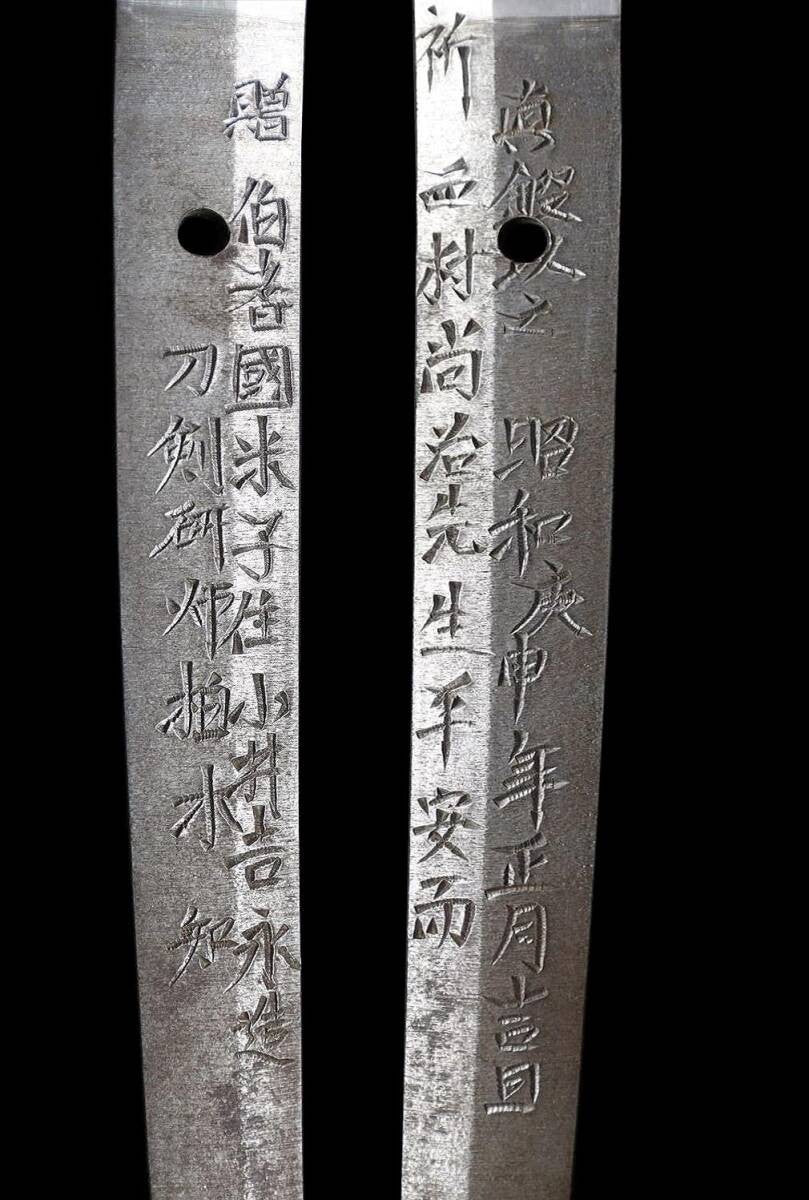 真鍛以之 昭和庚申年正月吉日
祈 西村尚治先生平安而
贈 伯耆國米子住小井吉永造
刀剣研师拍水 知